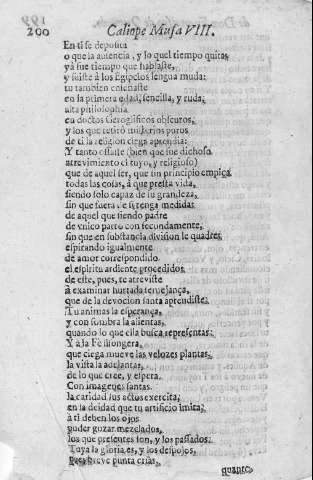 200 Caliope Musa VIII.
En ti se deposita
o que la ausencia, y lo quel tiempo quita,
yá fue tiempo que hablaste,
y fuiste á los Egipcios lengua muda:
tu tambien enseñaste
en la primera edad, sencilla, y ruda,
alta philosophia
en doctos Geroglificos obscuros,
y los que retirò misterios puros
de ti la religion ciega aprendia:
Y tanto osaste (bien que fue dichoso
atrevimiento el tuyo, y religioso)
que de aquel ser, que sin principio empieça
todas las cosas, á que presta vida,
siendo solo capaz de su grandeza,
sin que fuera de si tenga medida:
de aquel que siendo padre
de vnico parto con fecundamente,
sin que en substancia division le quadre,
espirando igualmente
de amor correspondido
el espiritu ardiente procedido,
de este, pues, te atreviste
à examinar hurtada semejança,
que de la devocion santa aprendiste.
Tu animas la esperança,
y con sombra la alientas,
quando lo que ella busca representas:
Y à la Fè sin
que ciega mueve las velozes plantas,
la vista la adelantas,
de lo que cree, y espera.
Con imagenes santas
la caridad sus actos exercita,
en la deidad que tu artificio imita,
à ti deben los ojos
poder gozar mezclados,
los que presentes son, y los passados.
Tuya la gloria es, y los despojos,
pues breve punta crias,
quanto